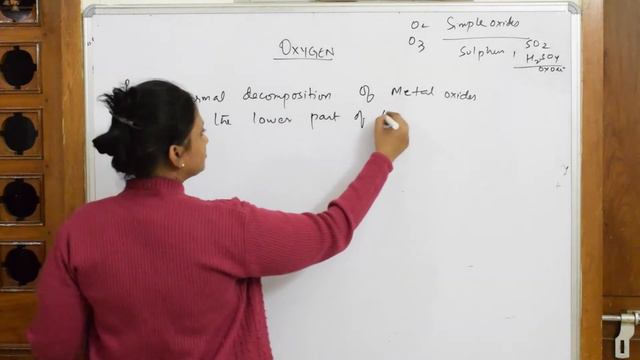 O2
O3
Simple oxides
Sulphur, SO2
H2SO4
OXYGEN
rmal decomposition of Metal oxides
the lower part of